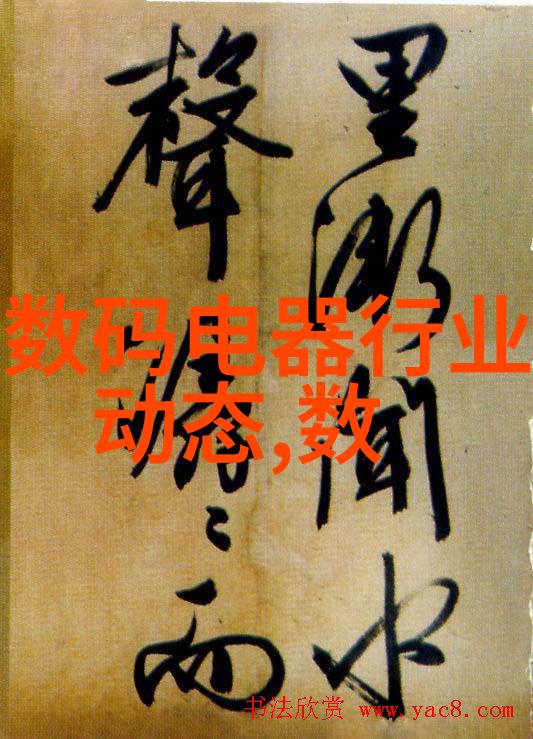 里漸聞水
聲潺々而
数码电器行业
动态,数
书法欣赏 www.yac8.com